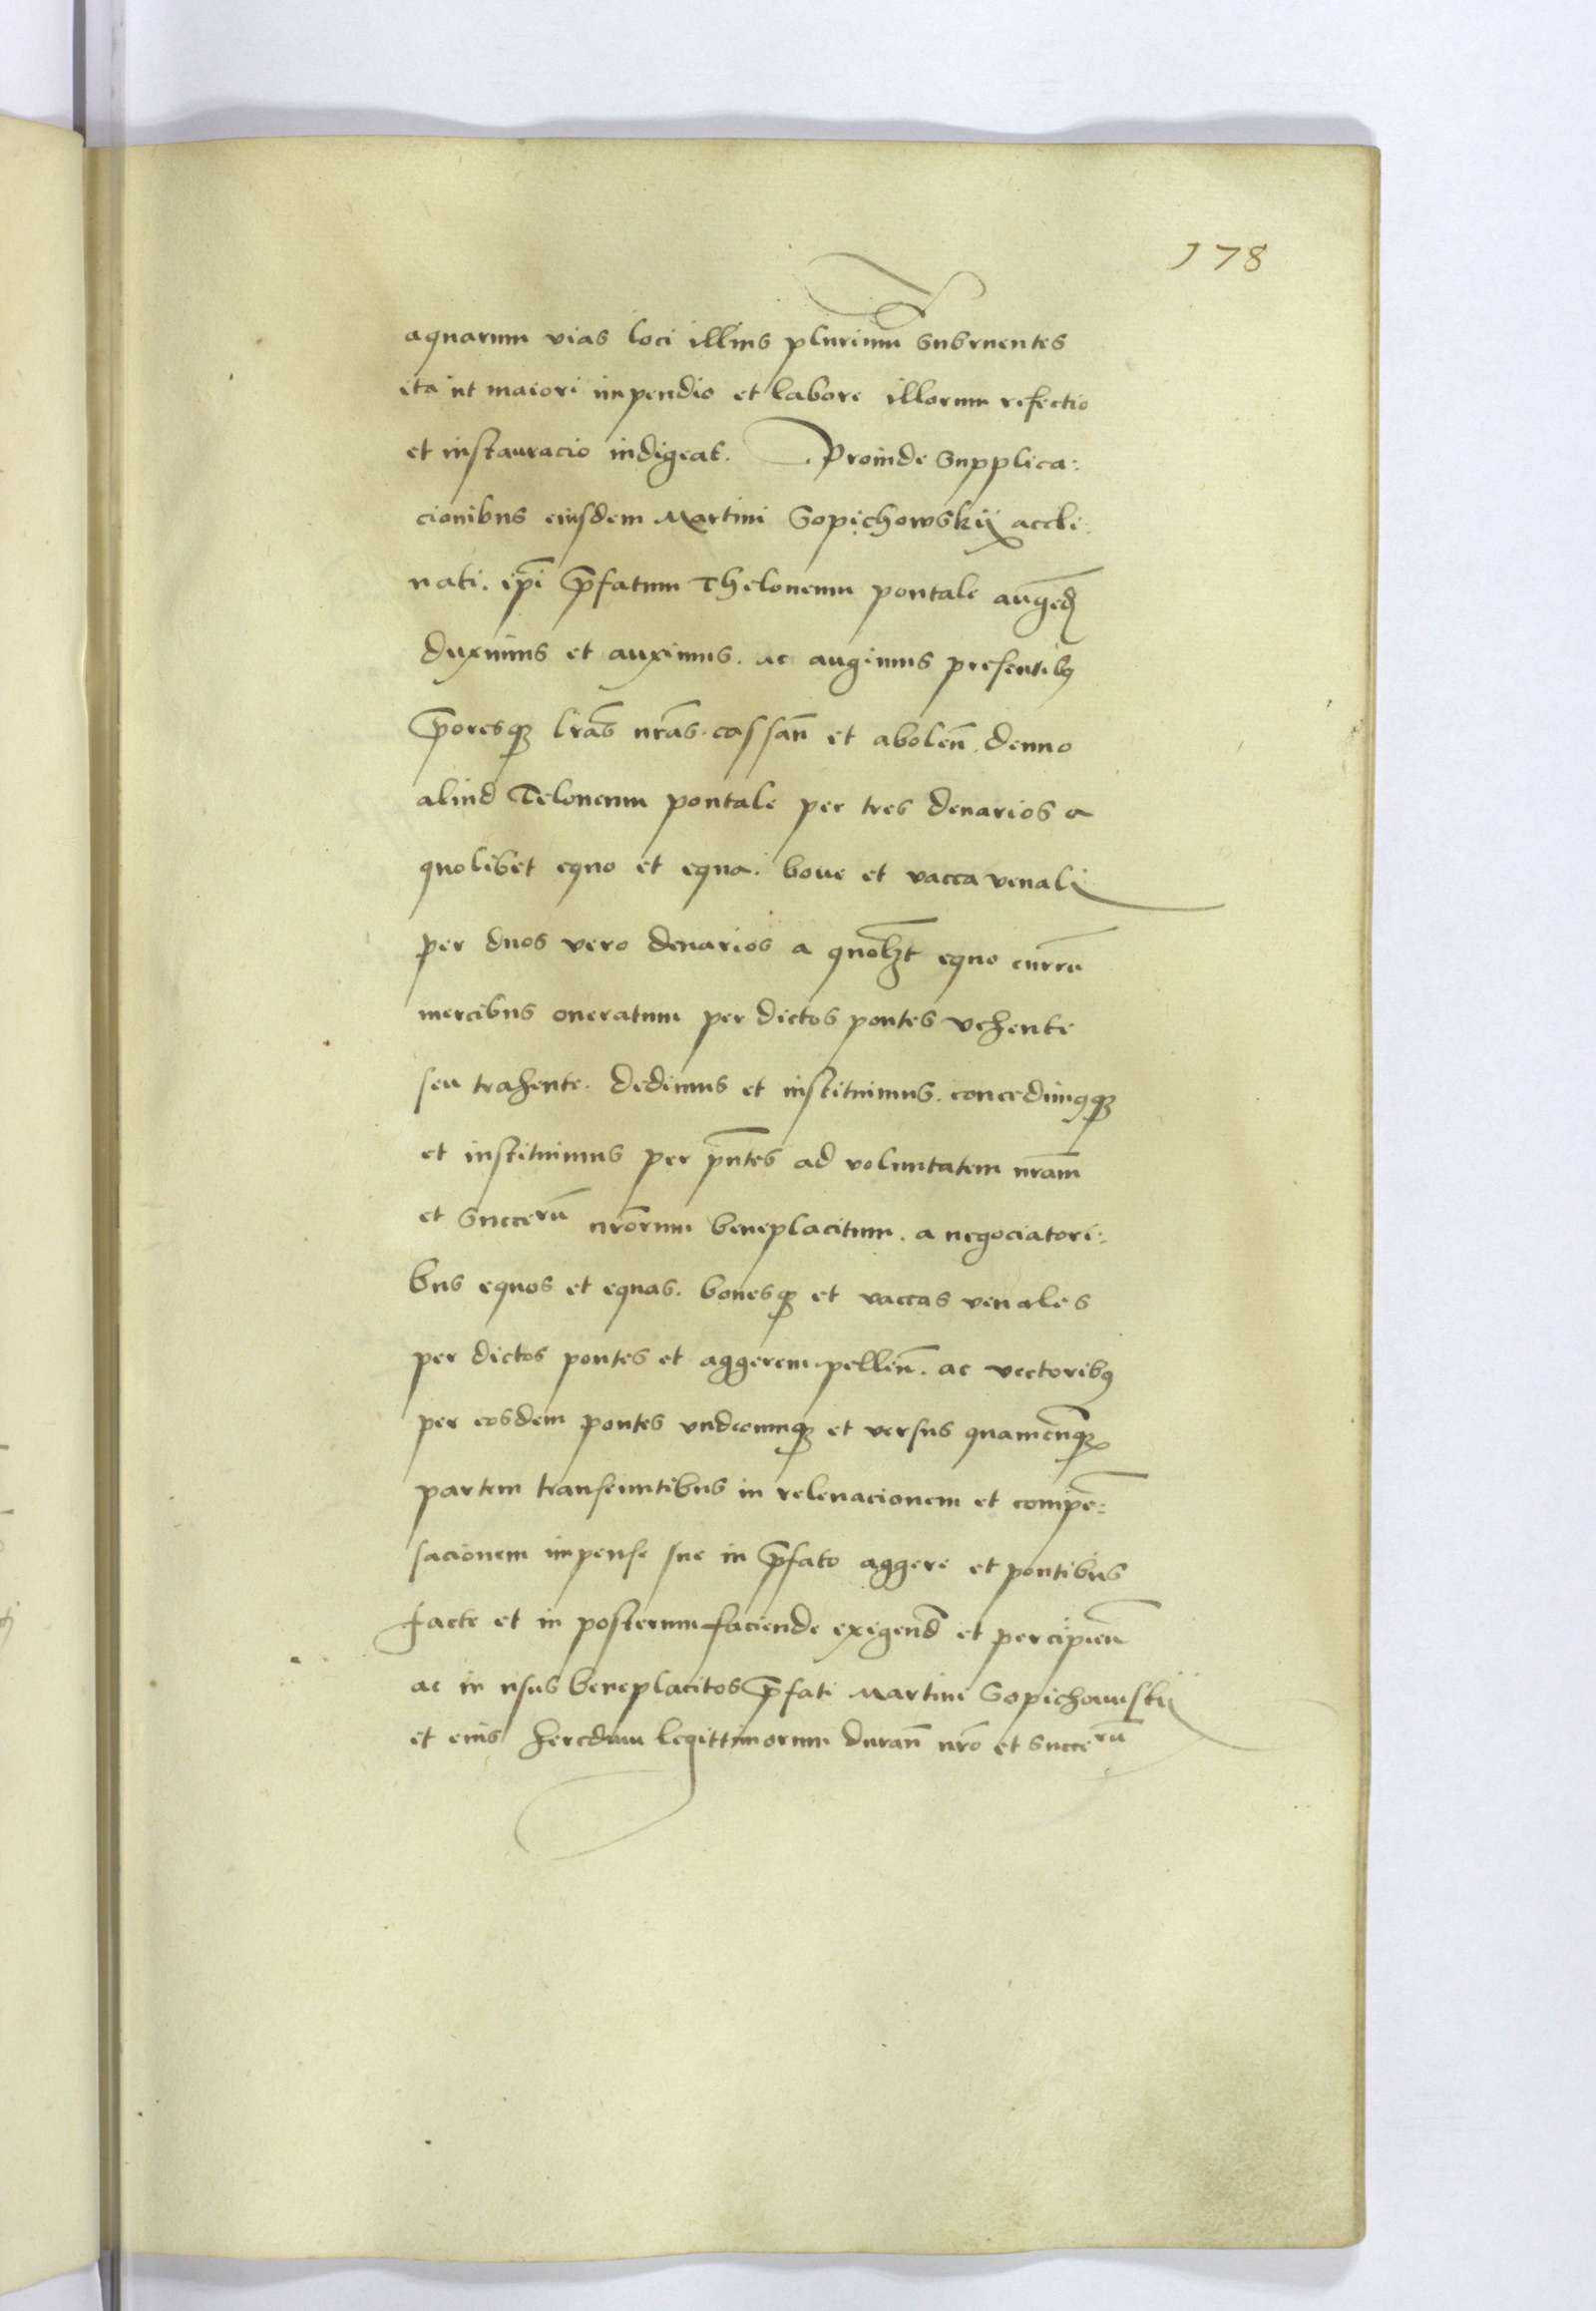 178
aquarum vias loci illius plurimũ subruentes
ita ut maiori impendio et labore illorum refectio
et instauracio indigeat. Proinde supplica:
cionibus eiusdem Martini Sopichowskij accli:
nati. ip̃i p̃fatum Theloneum pontale augẽd
duximus et auximus. ac augimus presentibꝰ
p̃oresqꝫ lr̃as nr̃as cassañ et aboleñ denuo
aliud Teloneum pontale per tres denarios a
quolibet equo et equa. boue et vacca venali
per duos vero denarios a quolꝫt equo currũ
mercibus oneratum per dictos pontes vehente
seu trahente. dedimus et instituimus. concedimꝰqꝫ
et instituimus per pñtes ad voluntatem nr̃am
et succerũ nr̃orum beneplacitum. a negociatori:
bus equos et equas. bouesqꝫ et vaccas venales
per dictos pontes et aggerem pelleñ. ac vectoribꝰ
per eosdem pontes undecumqꝫ et versus quamcũqꝫ
partem transeuntibus in releuacionem et compẽ:
sacionem impense sue in p̃fato aggere et pontibus
facte et in posterum faciende exigend̃ et percipieñ
ac in usus beneplacitos p̃fati Martini Sopichowskij
et eius heredum legittimorum durañ nr̃o et succerũ